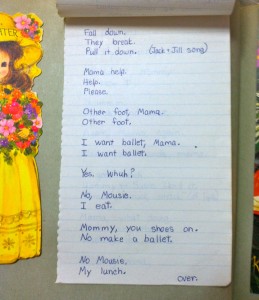 Fall down.
They break.
Pull it down. (Jack + Jill song)
Mama help.
Help.
Please.
Other foot, Mama.
Other foot.
I want ballet, Mama.
I want ballet.
Yes. Whuh?
No, Mousie.
I eat.
Mommy, you shoes on.
No make a ballet.
No Mousie.
My lunch.
over.